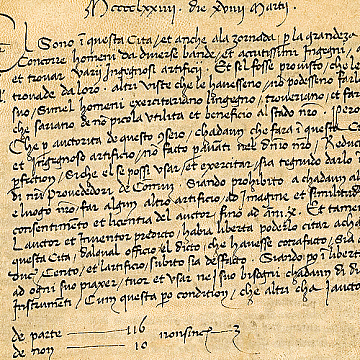 Mcccclxxiiij. die xviiij Martij.
El Sono i questa Cita, et anche ala zornada p la grandeza
Concorre homeni da diverse bande, et acutissimi Ingegni,
et trovar Varij Ingegnosi artificij. Et sel fosse provisto, che le
trovade da loro. altri viste che le havesseno, no podesseno far
suo, Simel homeni exercitariano lingegno, troveriano, et far
che sariano de no picola utilita et beneficio al stado nro. Per
Che p auctorita de questo 9seio, chadaun che fara i questa
et Ingegnoso artificio, no facto p avati nel dnio nro, Reduc
pfection, Siche el se possi usar, et exercitar, sia tegnudo darlo i
di nri Provededori de Comun. Siando prohibito a chadaun al
e luogo nro, far algun altro artificio, ad imagine et similitud
consentimeto et licentia del auctor, fino ad ani x. Et tame
Lauctor et Inventor predicto, habia liberta podelo citar acha
questa Cita, dalqual officio el dicto, che havesse cotrafacto, sia
duc. Cento, et lartificio, subito sia desfacto. Siando po i liberta
ad ogni suo piaxer, tuor et usar nei suo bisogni chadaun di di
Instrumeti, Cum questa po condition, che altri cha i auct
de parte 116
de non 10 nonsince 3